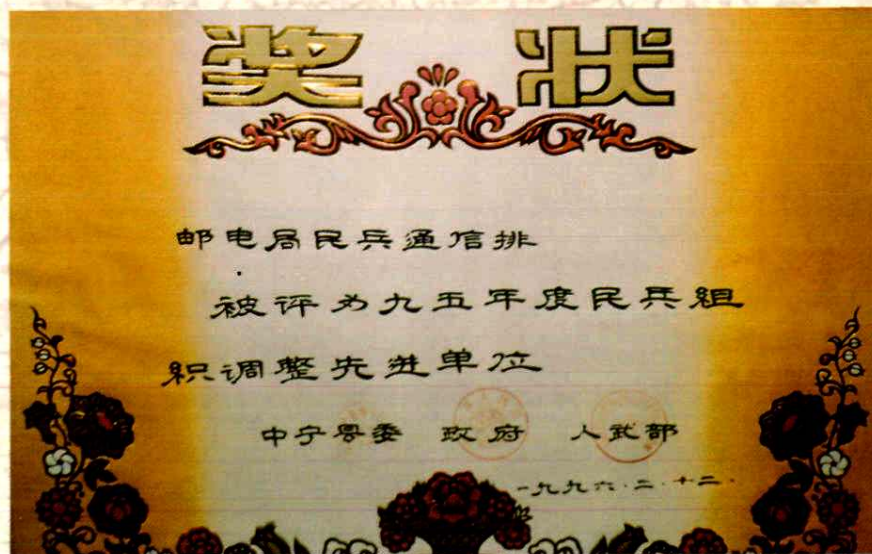 奖 状
邮电局民兵通信排
被评为九五年度民兵组
织调整先进单位
中宁县委 政府 人武部
一九九六·二·十二·